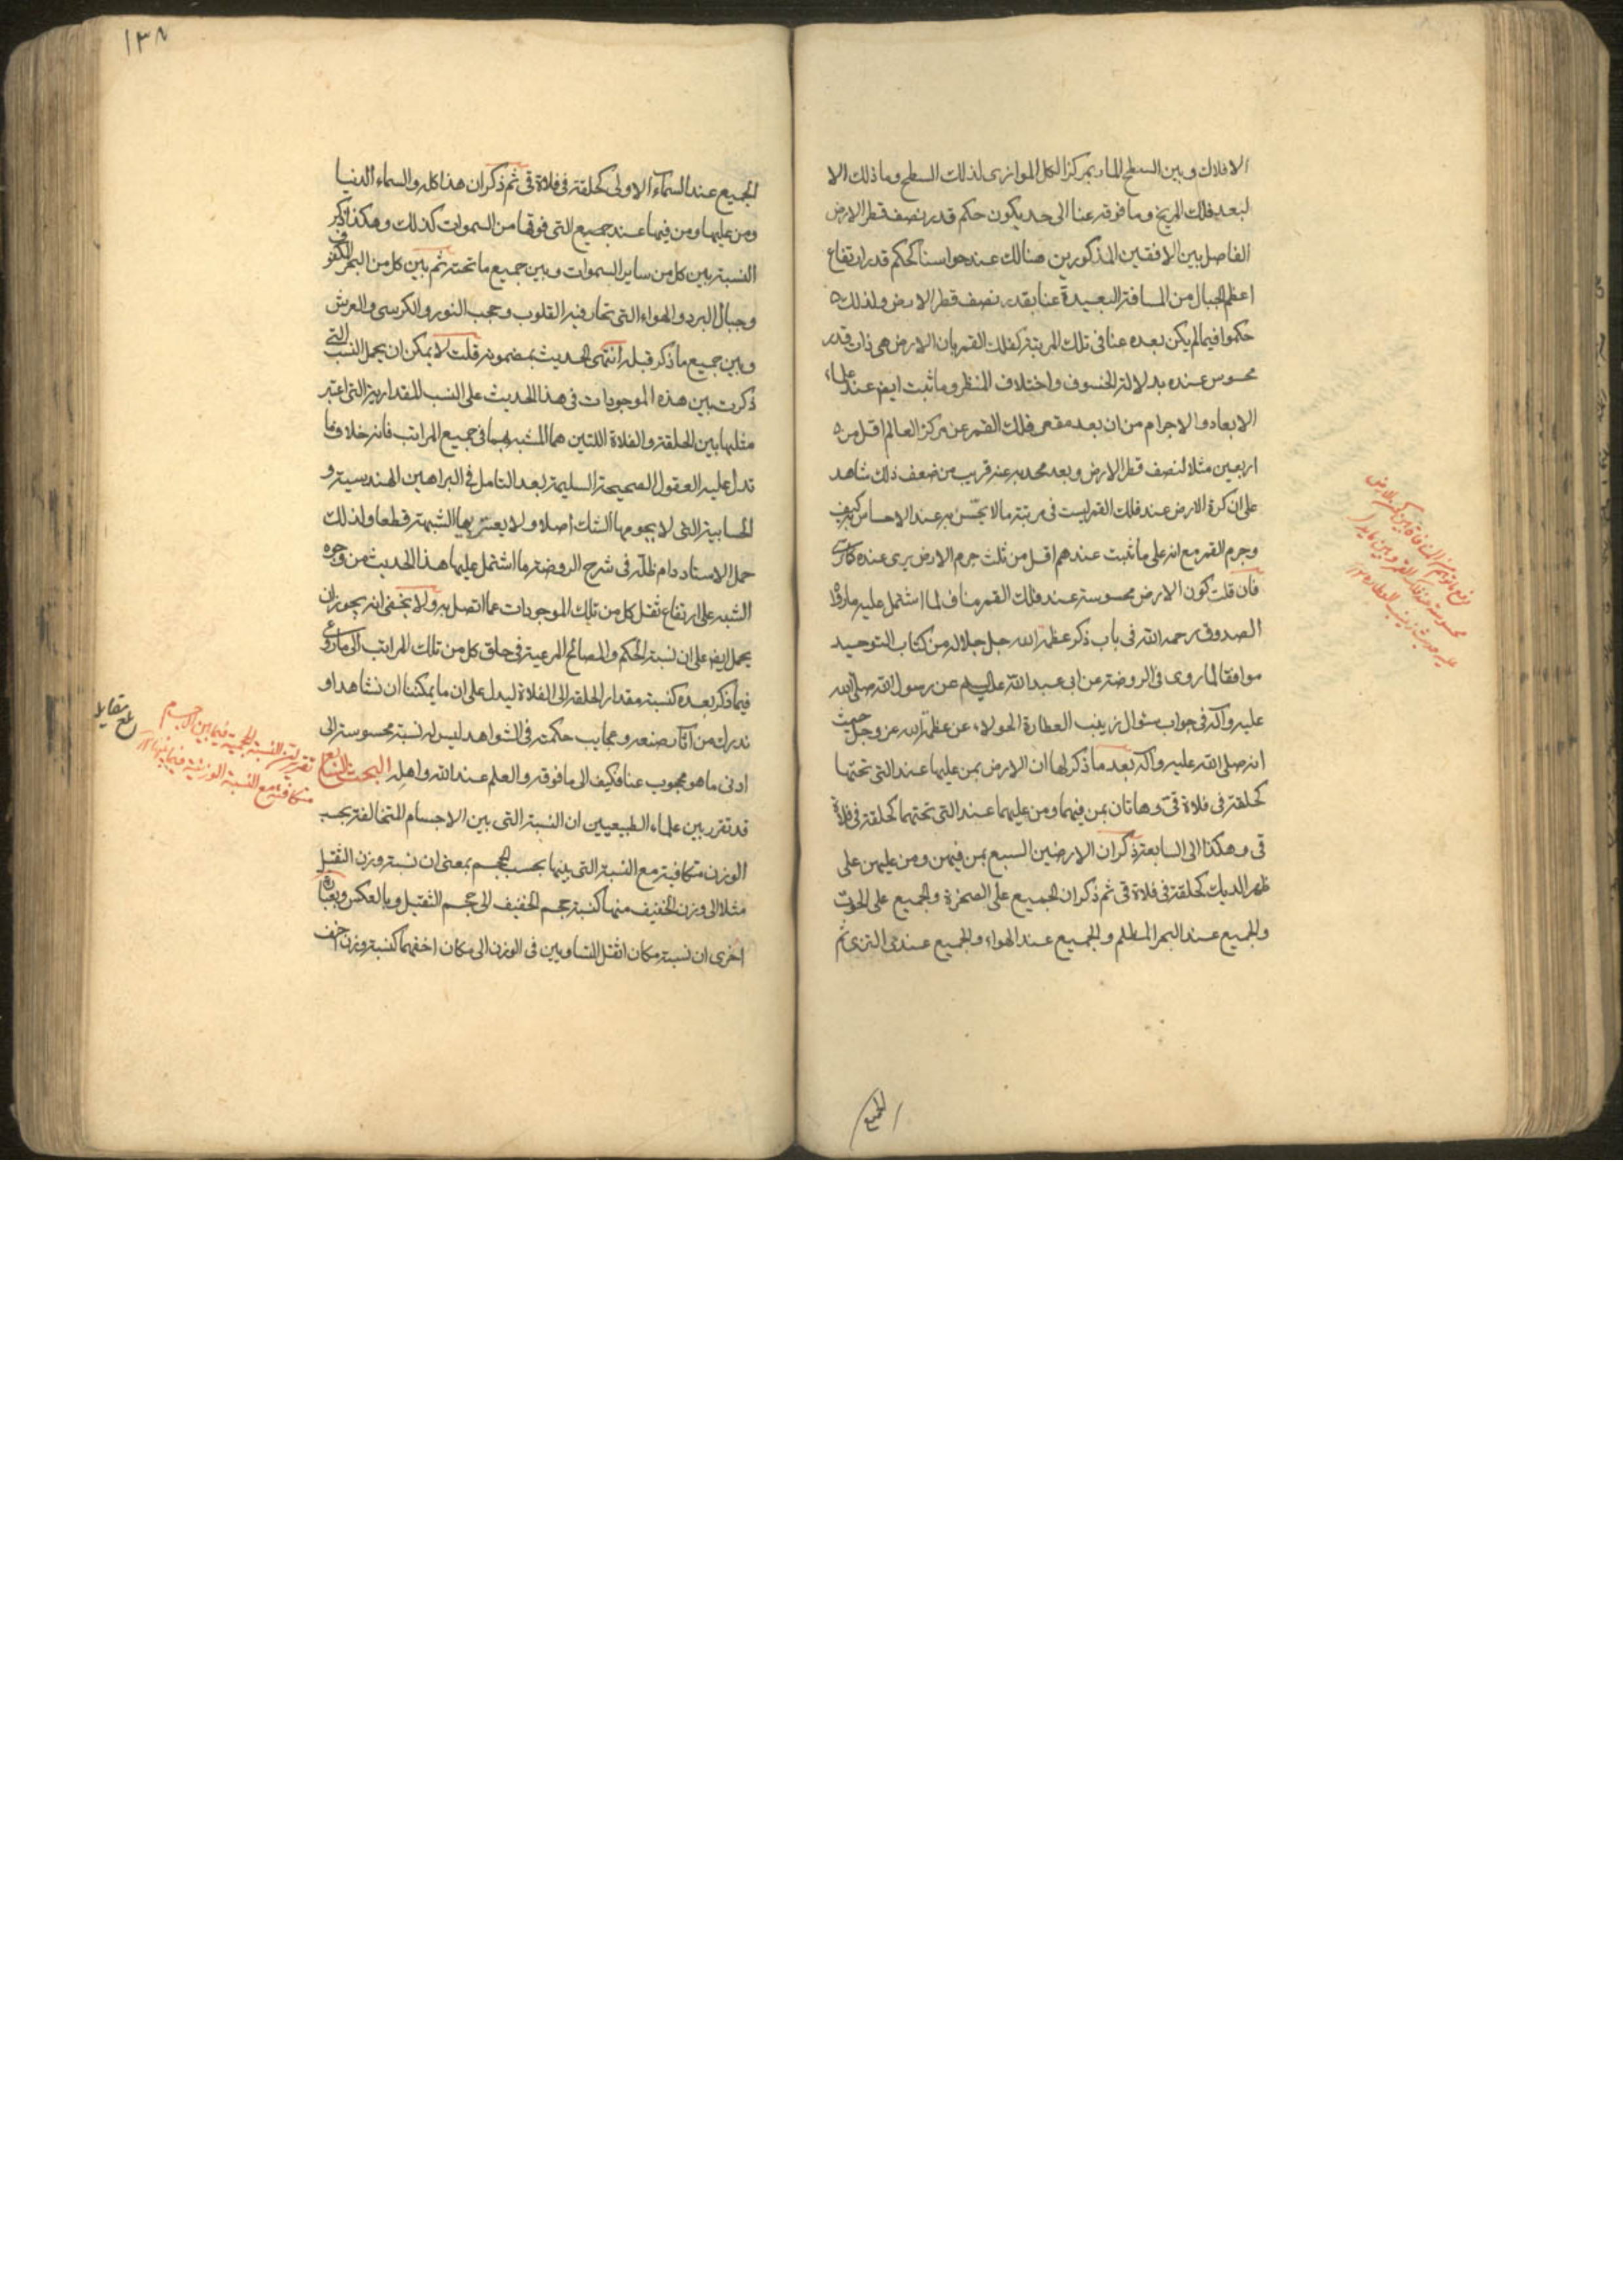 الافلاك وبين السطح المار بمركز الكل الموازى لذلك السطح وما ذلك الا
لبعد فلك المريخ وما فوقه عنا الى حد يكون حكم قدر نصف قطر الارض
الفاصل بين الافقين المذكورين هنالك عند حواسنا كحكم قدر ارتفاع
اعظم الجبال من المسافة البعيدة عنا بقدر نصف قطر الارض ولذلك
حكموا فيما لم يكن بعده عنا فى تلك المرتبة كفلك القمر بان الارض هى ذات قدر
محسوس عنده بدلالة الخسوف واختلاف المنظر وما ثبت ايض عند علماء
الابعاد والاجرام من ان بعد مقعر فلك القمر عن مركز العالم اقل من
اربعين مثلا لنصف قطر الارض وبعد محدبه عنه قريب من ضعف ذلك شاهد
على ان كرة الارض عند فلك القمر ليست فى مرتبة ما لا يحس به عند الاحساس به كيف
وجرم القمر مع انه على ما ثبت عندهم اقل من ثلث جرم الارض يرى عنده كما يرى
فان قلت كون الارض محسوسة عند فلك القمر مناف لما اشتمل عليه ما رواه
الصدوق رحمه الله فى باب ذكر عظمة الله جل جلاله من كتاب التوحيد
موافقا لما روى فى الروضة عن ابى عبد الله عليه السلام عن رسول الله صلى الله
عليه وآله فى جواب سئوال زينب العطارة الحولاء عن عظمة الله عز وجل حيث
انه صلى الله عليه وآله بعد ما ذكر لها ان الارض بمن عليها عند التى تحتها
كحلقة فى فلاة قى وهاتان بمن فيهما ومن عليهما عند التى تحتهما كحلقة فى فلاة
قى وهكذا الى السابعة ذكر ان الارضين السبع بمن فيهن ومن عليهن على
ظهر الديك كحلقة فى فلاة قى ثم ذكر ان الجميع على الصخرة والجميع على الحوت
والجميع عند البحر المظلم والجميع عند الهواء والجميع عند الثرى ثم
الجميع
محسوسة عند فلك القمر وبين ما يدل
عليه حديث زينب العطارة ١٢
١٣٨
الجميع عند السمآء الاولى كحلقة فى فلاة قى ثم ذكر ان هذا كله والسماء الدنيا
ومن عليها ومن فيها عند جميع التى فوقها من السموات كذلك وهكذا ذكر
النسبة بين كل من ساير السموات وبين جميع ما تحته ثم بين كل من البحر المكفوف
وجبال البرد والهواء التى تحار فيه القلوب وحجب النور والكرسى والعرش
وبين جميع ما ذكر قبله انتهى الحديث بمضمونه قلت لا يمكن ان يحمل النسب التى
ذكرت بين هذه الموجودات فى هذا الحديث على النسب المقدارية التى اعتبر
مثلها بين الحلقة والفلاة اللتين هما المشبه بهما فى جميع المراتب فانه خلاف ما
تدل عليه العقول الصحيحة السليمة بعد التامل فى البراهين الهندسية و
الحسابية التى لا يحومها الشك اصلا ولا يعتريها الشبهة قطعا ولذلك
حمل الاستاد دام ظله فى شرح الروضة ما اشتمل عليها هذا الحديث من وجوه
الشبه على ارتفاع ثقل كل من تلك الموجودات عما اتصل به ولا يخفى انه يجوز ان
يحمل ايض على ان نسبة الحكم والمصالح المرعية فى خلق كل من تلك المراتب الى ما روعى
فيما ذكر بعده كنسبة مقدار الحلقة الى الفلاة ليدل على ان ما يمكننا ان نشاهد او
ندرك من آثار صنعه وعجايب حكمته فى الشواهد ليس له نسبة محسوسة الى
ادنى ما هو محجوب عنا فكيف الى ما فوقه والعلم عند الله واهله البحث التاسع
قد تقرر بين علماء الطبيعيين ان النسبة التى بين الاجسام المتخالفة بحسب
الوزن متكافية مع النسبة التى بينها بحسب الحجم بمعنى ان نسبة وزن الثقيل
مثلا الى وزن الخفيف منها كنسبة حجم الخفيف الى حجم الثقيل وبالعكس وبعبارة
اخرى ان نسبة مكان اثقل المتساويين فى الوزن الى مكان اخفهما كنسبة وزن اخف
بلغ مقابلة
تقرير ان النسبة الحجمية فيما بين الاجسام
متكافئة مع النسبة الوزنية فيما بينها ١٢